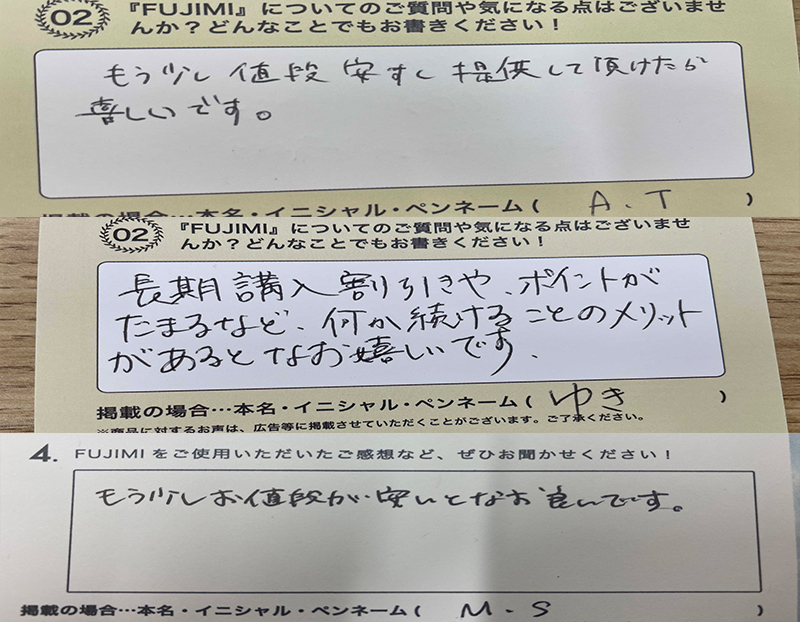 02
『FUJIMI』についてのご質問や気になる点はございませ
んか？どんなことでもお書きください！
もう少し値段安すし提供して頂けたが
喜しいです。
掲載の場合…本名・イニシャル・ペンネーム( A.T )
02
『FUJIMI』についてのご質問や気になる点はございませ
んか？どんなことでもお書きください！
長期講入割引きや、ポイントが
たまるなど、何か続けることのメリット
があるとなお嬉しいです、
掲載の場合…本名・イニシャル・ペンネーム( ゆき )
※商品に対するお声は、広告等に掲載させていただくことがございます。ご了承ください。
4. FUJIMIをご使用いただいたご感想など、ぜひお聞かせください！
もう少しお値段が安いとなお良いです。
掲載の場合…本名・イニシャル・ペンネーム( M.S )